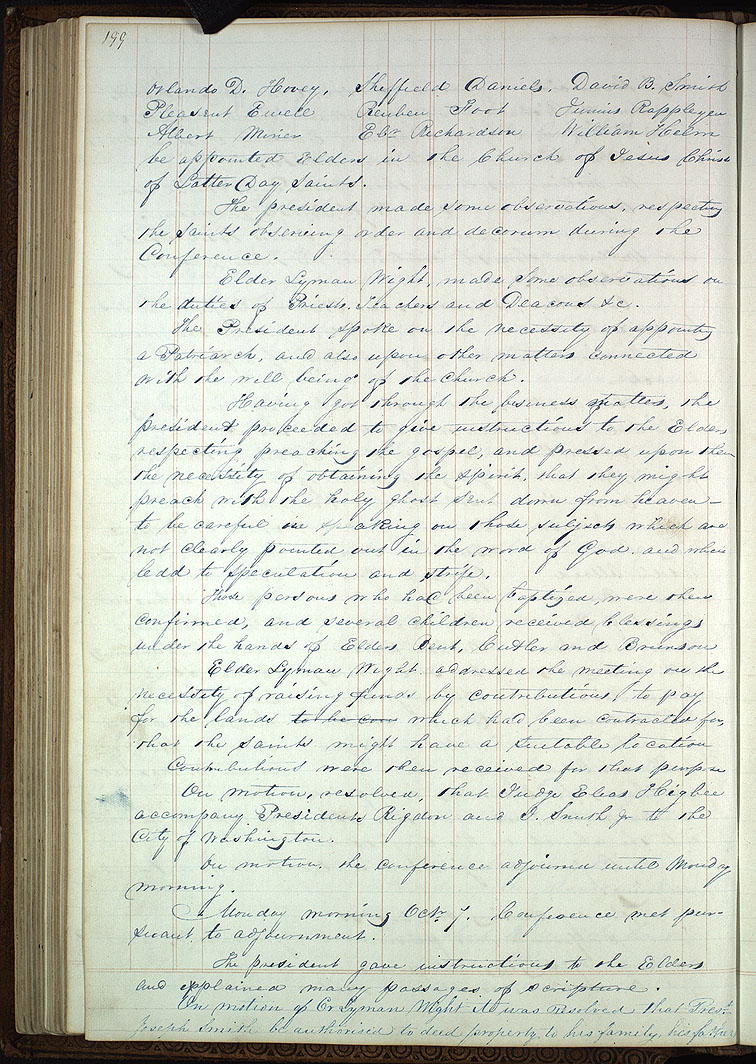 199
Orlando D. Hovey, Sheffield Daniels, David B. Smith
Pleasent Ewell Reuben Foot Junius Rappleyeu
Albert Miner Ebr Richardson William Helm
be appointed Elders in the Church of Jesus Christ
of Latter Day Saints.
The president made some observations, respecting
the saints observing order and decorum during the
Conference.
Elder Lyman Wight, made some observations on
the duties of Priests, Teachers and Deacons &c.
The President spoke on the necessity of appointg
a Patriarch, and also upon other matters connected
with the well being of the church.
Having got through the business matters, the
president proceeded to give instructions to the Elders
respecting preaching the gospel, and pressed upon them
the necessity of obtaining the spirit, that they might
preach with the holy ghost sent down from heaven—
to be careful in speaking on those subjects which are
not clearly pointed out in the word of God, and which
ledd to speculation and strife.
Those persons who had been baptized, were then
confirmed, and several children received blessings
under the hands of Elders Bent, Cutler and Brunson
Elder Lyman Wight addressed the meeting on the
necessity of raising funds by contributions to pay
for the lands to be con which had been contracted for,
that the saints might have a suitable location
Contributions were then received for that purpose
On motion, resolved, that Judge Elias Higbee
accompany Presidents Rigdon and J. Smith Jr to the
City of Washington.
On motion, the conference adjourned until Monday
morning.
Monday morning Octr 7. Conference met pur-
suant to adjournment.
The president gave instructions to the Elders
and explained many passages of scripture.
On motion of Er Lyman Wight it was resolved that Prest
Joseph Smith be authorised to deed property to his family, his father